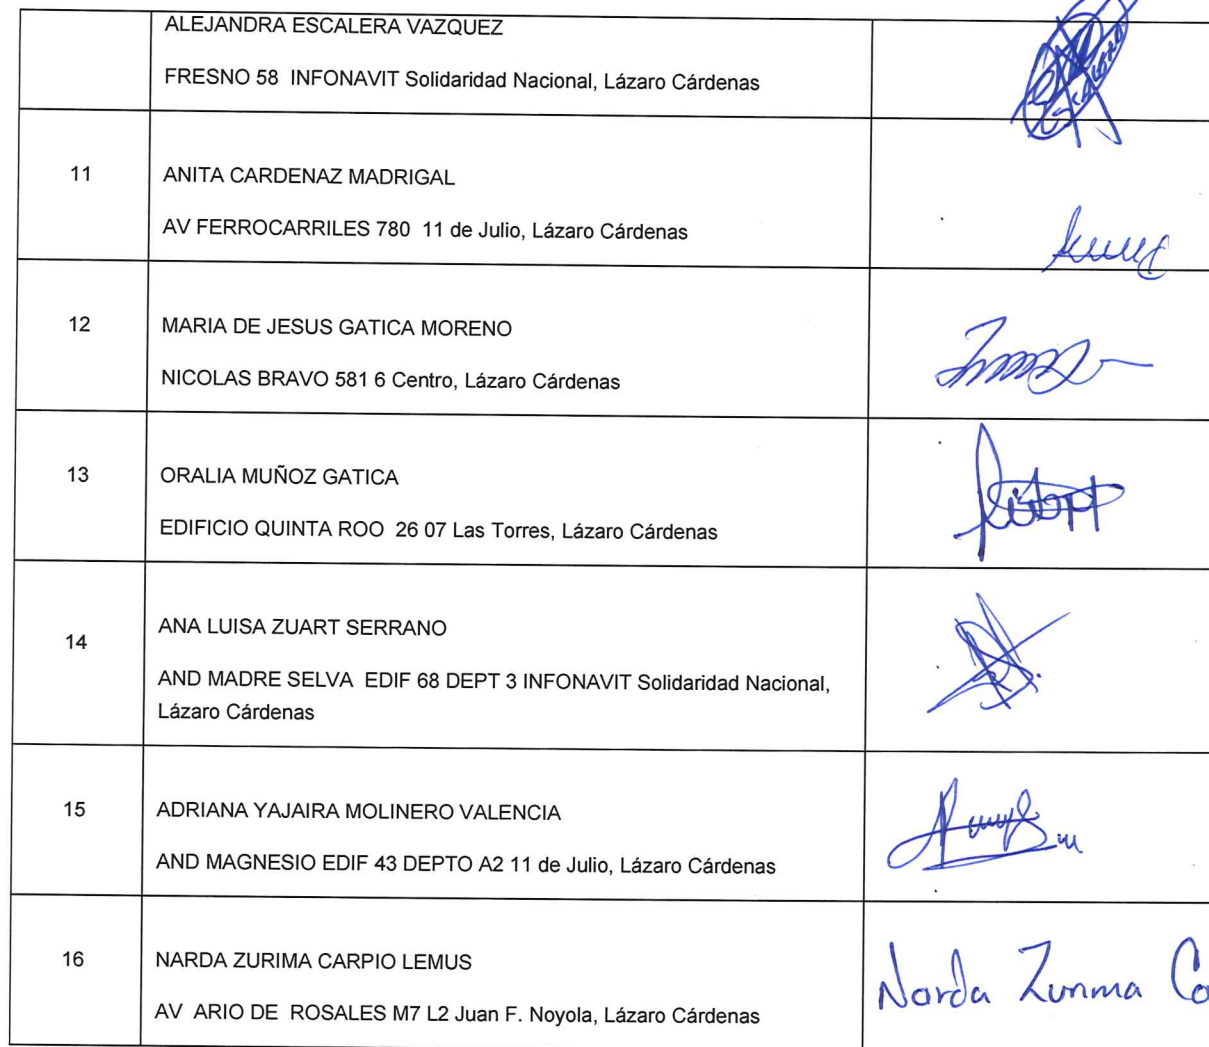 ALEJANDRA ESCALERA VAZQUEZ
FRESNO 58 INFONAVIT Solidaridad Nacional, Lázaro Cárdenas
11
ANITA CARDENAZ MADRIGAL
AV FERROCARRILES 780 11 de Julio, Lázaro Cárdenas
12
MARIA DE JESUS GATICA MORENO
NICOLAS BRAVO 581 6 Centro, Lázaro Cárdenas
13
ORALIA MUÑOZ GATICA
EDIFICIO QUINTA ROO 26 07 Las Torres, Lázaro Cárdenas
14
ANA LUISA ZUART SERRANO
AND MADRE SELVA EDIF 68 DEPT 3 INFONAVIT Solidaridad Nacional,
Lázaro Cárdenas
15
ADRIANA YAJAIRA MOLINERO VALENCIA
AND MAGNESIO EDIF 43 DEPTO A2 11 de Julio, Lázaro Cárdenas
16
NARDA ZURIMA CARPIO LEMUS
AV ARIO DE ROSALES M7 L2 Juan F. Noyola, Lázaro Cárdenas
Narda Zurima Ca